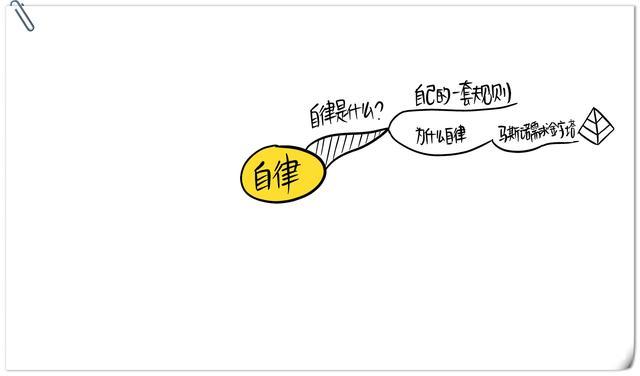 自律是什么?
自己的一套规则
为什么自律
马斯诺需求金字塔
自律